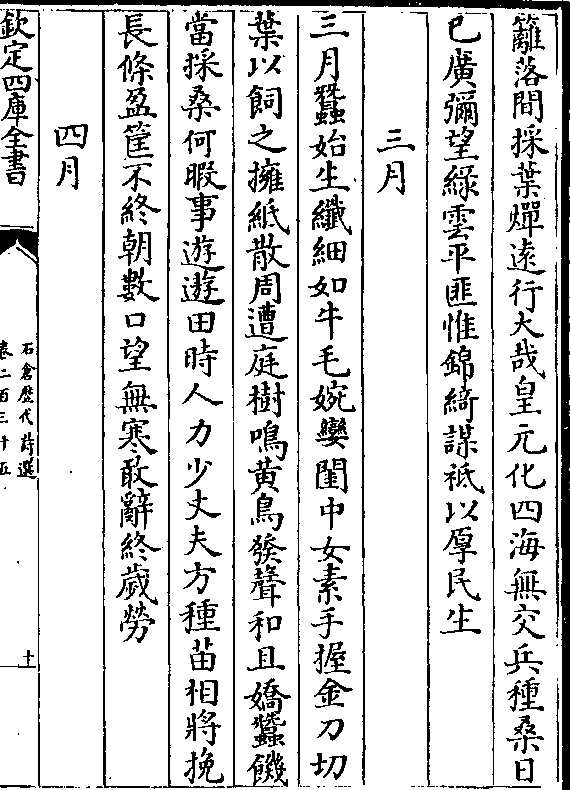 籬落間採葉燀遠行大哉皇元化四海無交兵種桑日
已廣彌望綠雲平匪惟錦綺謀祗以厚民生
三月
三月蠶始生纖細如牛毛婉孌閨中女素手握金刀切
葉以飼之擁紙散周遭庭樹鳴黄鳥發聲和且嬌蠶饑
當採桑何暇事遊遨田時人力少丈夫方種苗相將挽
長條盈筐不終朝數口望無寒敢辭終歲勞
四月
欽定四庫全書
石倉歷代詩選
卷二百三十五
十